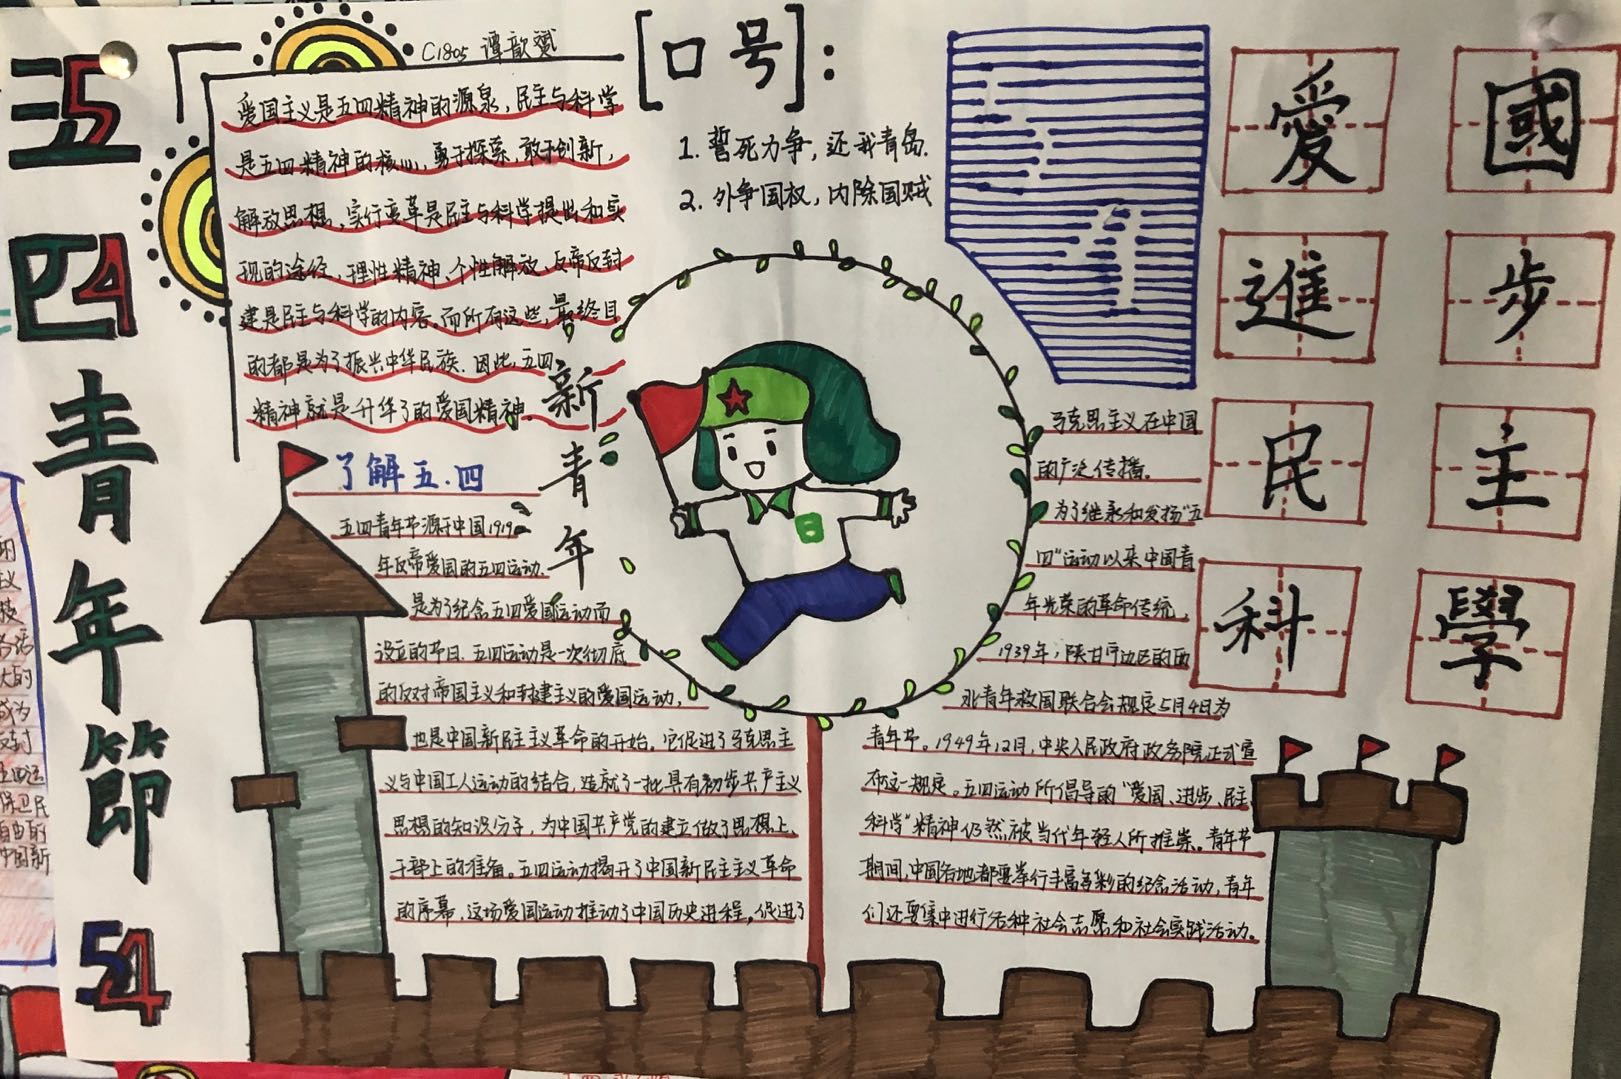 五四青年節
54
C1805 谭歆赟
爱国主义是五四精神的源泉，民主与科学
是五四精神的核心，勇于探索、敢于创新，
解放思想，实行变革是民主与科学提出和实
现的途径，理性精神、个性解放、反帝反封
建是民主与科学的内容。而所有这些，最终目
的都是为了振兴中华民族．因此，五四
精神就是升华了的爱国精神。
[口号]:
1. 誓死力争，还我青岛.
2. 外争国权，内除国贼
5
4
愛國
進步
民主
科學
新青年
了解五.四
五四青年节源于中国1919
年反帝爱国的五四运动.
是为了纪念五四爱国运动而
设立的节日．五四运动是一次彻底
的反对帝国主义和封建主义的爱国运动，
也是中国新民主主义革命的开始。它促进了马克思主
义与中国工人运动的结合，造就了一批具有初步共产主义
思想的知识分子，为中国共产党的建立做了思想上、
干部上的准备。五四运动揭开了中国新民主主义革命
的序幕，这场爱国运动推动了中国历史进程，促进了
马克思主义在中国
的广泛传播．
为了继承和发扬"五
四"运动以来中国青
年光荣的革命传统，
1939年，陕甘宁边区的西
北青年救国联合会规定5月4日为
青年节。1949年12月，中央人民政府政务院正式宣
布这一规定。五四运动所倡导的"爱国、进步、民主、
科学"精神仍然被当代年轻人所推崇。青年节
期间，中国各地都要举行丰富多彩的纪念活动，青年
们还要集中进行各种社会志愿和社会实践活动。